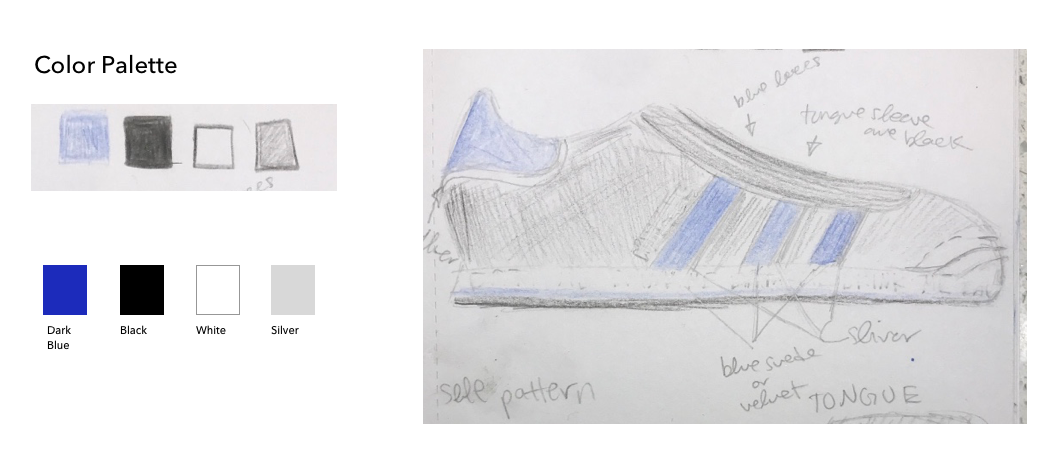 Color Palette
es
Dark
Blue
Black
White
Silver
blue laces
tongue sleeve
are black
ther
sliver
blue suede
or
velvet
TONGUE
sole pattern